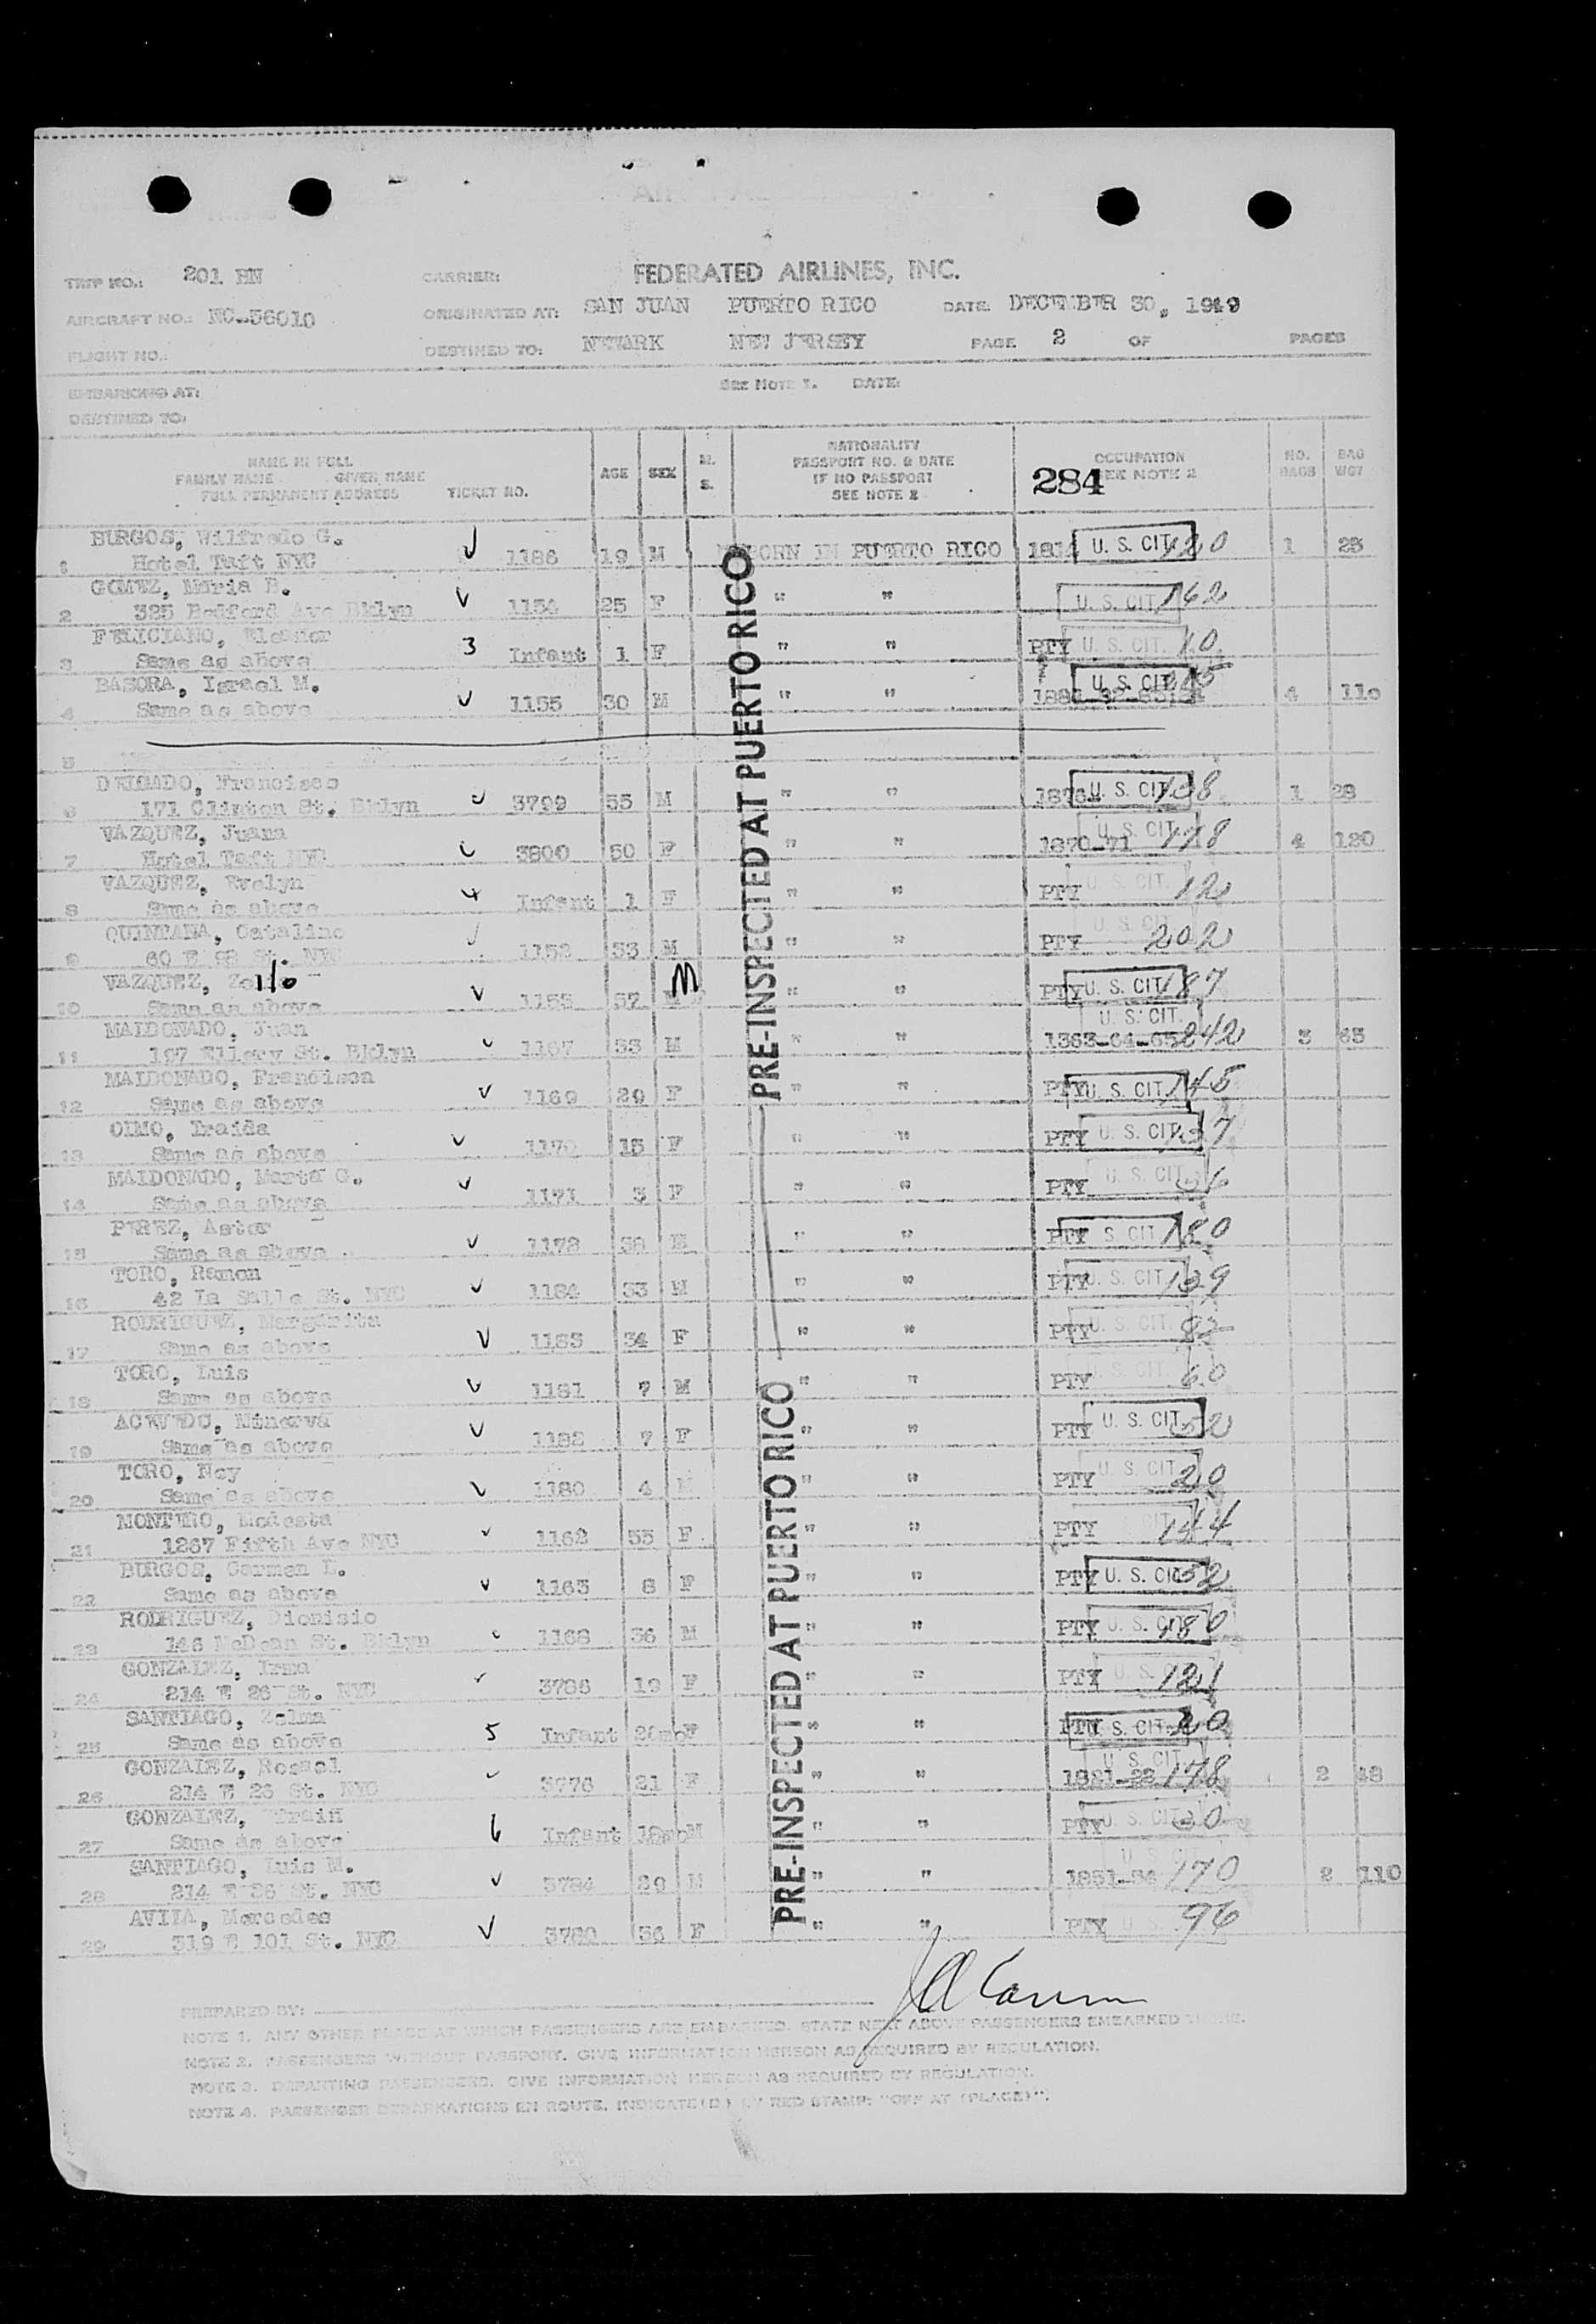 TRIP NO.: 201 BN CARRIER: FEDERATED AIRLINES, INC.
AIRCRAFT NO.: NC-56010 ORIGINATED AT: SAN JUAN PUERTO RICO DATE DECEMBER 30, 1949
FLIGHT NO.: DESTINED TO: NEWARK NEW JERSEY PAGE 2 OF PAGES
EMBARKING AT: SEE NOTE 1. DATE:
DESTINED TO:
NAME IN FULL
FAMILY NAME GIVEN NAME
FULL PERMANENT ADDRESS TICKET NO. AGE SEX M. S.
NATIONALITY
PASSPORT NO. & DATE
IF NO PASSPORT
SEE NOTE 2
OCCUPATION
SEE NOTE 2
284
NO. BAGS
BAG WGT
PRE-INSPECTED AT PUERTO RICO
PRE-INSPECTED AT PUERTO RICO
BURGOS, Wilfredo G.
1 Hotel Taft NYC 1186 19 M BORN IN PUERTO RICO U. S. CIT. 120 1 25
GOMEZ, Maria B.
2 325 Bedford Ave Bklyn 1154 25 F " " U. S. CIT. 162
FELICIANO, Eleanor
3 Same as above 3 Infant 1 F " " PTY U. S. CIT. 10
BASORA, Israel M.
4 Same as above 1155 30 M " " U. S. CIT. 4 110
5
DELGADO, Francisco
6 171 Clinton St. Bklyn 3799 55 M " " U. S. CIT. 1 28
VAZQUEZ, Juana
7 Hotel Taft NYC 3800 50 F " " 1870-71 U. S. CIT. 4 120
VAZQUEZ, Evelyn
8 Same as above 4 Infant 1 F " " PTY U. S. CIT. 12
QUINTANA, Catalino
9 60 E 98 St. NYC 1152 53 M " " PTY 202
VAZQUEZ,
10 Same as above 57 M " " PTY U. S. CIT. 187
MALDONADO, Juan
11 197 Ellery St. Bklyn 1167 M " " 1363-64-65 U. S. CIT. 242 3 65
MALDONADO, Francisca
12 Same as above 1169 29 F " " PTY U. S. CIT. 145
OIMO, Iraida
13 Same as above 1170 15 F " " PTY U. S. CIT.
MALDONADO, Marta G.
14 Same as above 1171 3 F " " PTY U. S. CIT.
PEREZ, Astor
15 Same as above 1172 38 " " PTY U. S. CIT. 180
TORO, Ramon
16 42 La Salle St. NYC 1184 33 M " " PTY U. S. CIT. 139
RODRIGUEZ, Margarita
17 Same as above 1183 34 F " " PTY U. S. CIT.
TORO, Luis
18 Same as above 1181 7 M " " PTY 60
ACEVEDO, Minerva
19 Same as above 1182 7 F " " PTY U. S. CIT. 52
TORO, Noy
20 Same as above 1180 4 M " " PTY U. S. CIT. 20
MONTERO, Modesta
21 1267 Fifth Ave NYC 1162 55 F " " PTY 144
BURGOS, Carmen L.
22 Same as above 1163 8 F " " PTY U. S. CIT. 52
RODRIGUEZ, Dionisio
23 146 McDean St. Bklyn 1168 36 M " " PTY U. S. CIT. 180
GONZALEZ, Irma
24 214 E 26 St. NYC 3786 19 F " " PTY U. S. CIT. 121
SANTIAGO, Zelma
25 Same as above 5 Infant 20mo F " " PTY U. S. CIT. 20
GONZALEZ,
26 214 E 26 St. NYC 3776 21 F " " 1821-22 U. S. CIT. 178 2 48
GONZALEZ, Efrain
27 Same as above 6 Infant M " " PTY U. S. CIT.
SANTIAGO, Luis M.
28 214 E 26 St. NYC 3784 29 M " " U. S. CIT. 170 2 110
AVILA, Mercedes
29 319 E 101 St. NYC 3780 36 F " " PTY U. S. 96
PREPARED BY:
NOTE 1. ANY OTHER PLACE AT WHICH PASSENGERS ARE EMBARKED. STATE NEXT ABOVE PASSENGERS EMBARKED THERE.
NOTE 2. PASSENGERS WITHOUT PASSPORT. GIVE INFORMATION HEREON AS REQUIRED BY REGULATION.
NOTE 3. DEPARTING PASSENGERS. GIVE INFORMATION HEREON AS REQUIRED BY REGULATION.
NOTE 4. PASSENGER DEBARKATIONS EN ROUTE. INDICATE (D.) BY RED STAMP: "OFF AT (PLACE)".